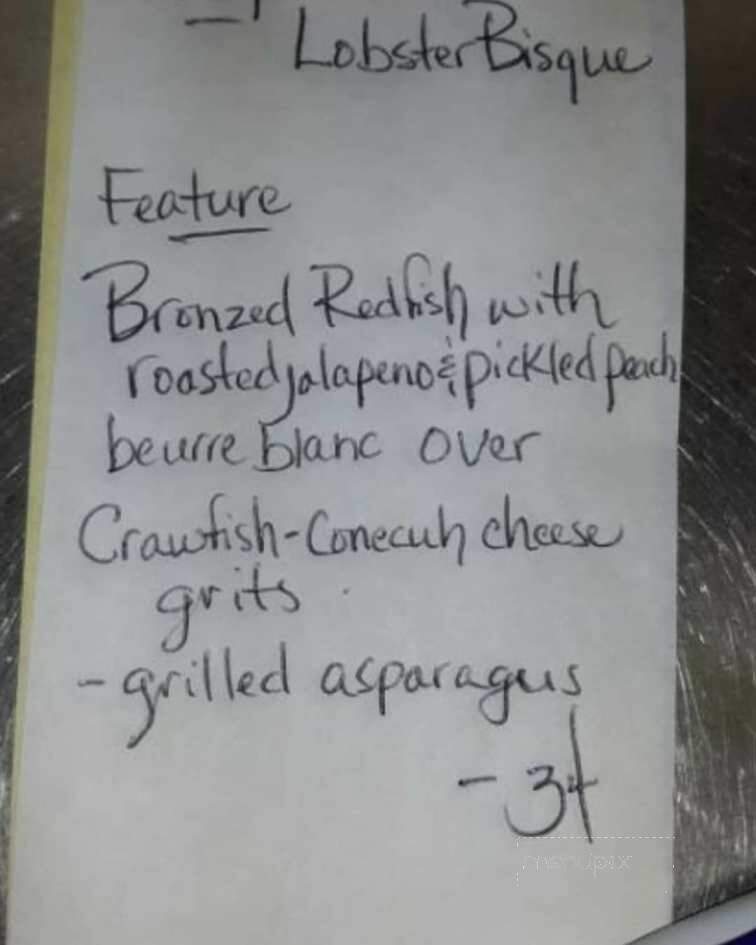 Lobster Bisque
Feature
Bronzed Redfish with
roasted jalapeno & pickled peach
beurre blanc over
Crawfish-Conecuh cheese
grits
- grilled asparagus
- 34
menupix